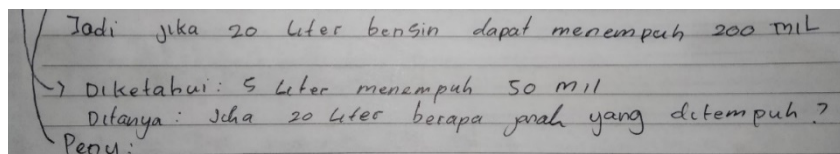 Jadi jika 20 liter bensin dapat menempuh 200 mil
→ Diketahui: 5 liter menempuh 50 mil
Ditanya: Jika 20 liter berapa jarak yang ditempuh?
Peny: